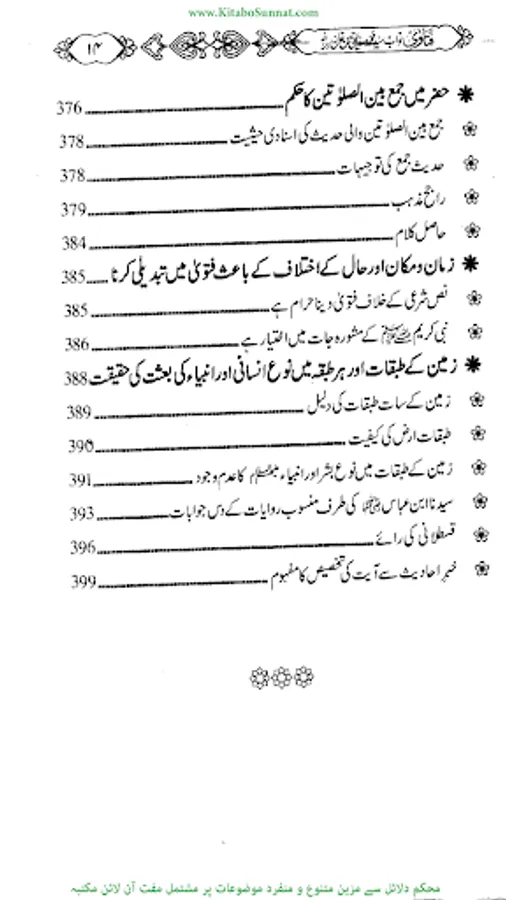 www.KitaboSunnat.com
فتاویٰ نواب سید محمد صدیق حسن خان
۱۴
حضر میں جمع بین الصلوٰتین کا حکم 376
جمع بین الصلوٰتین والی حدیث کی اسنادی حیثیت 378
حدیث جمع کی توجیہات 378
راجح مذہب 379
حاصل کلام 384
زمان و مکان اور حال کے اختلاف کے باعث فتویٰ میں تبدیلی کرنا 385
نص شرعی کے خلاف فتویٰ دینا حرام ہے 385
نبی کریم ﷺ کے مشورہ جات میں اختیار ہے 386
زمین کے طبقات اور ہر طبقہ میں نوع انسانی اور انبیاء کی بعثت کی حقیقت 388
زمین کے سات طبقات کی دلیل 389
طبقات ارض کی کیفیت 390
زمین کے طبقات میں نوع بشر اور انبیاء علیہم السلام کا عدم وجود 391
سیدنا ابن عباس رضی اللہ عنہ کی طرف منسوب روایات کے دس جوابات 393
قسطلانی کی رائے 396
خبر احادیث سے آیت کی تخصیص کا مفہوم 399
محکم دلائل سے مزین متنوع و منفرد موضوعات پر مشتمل مفت آن لائن مکتبہ